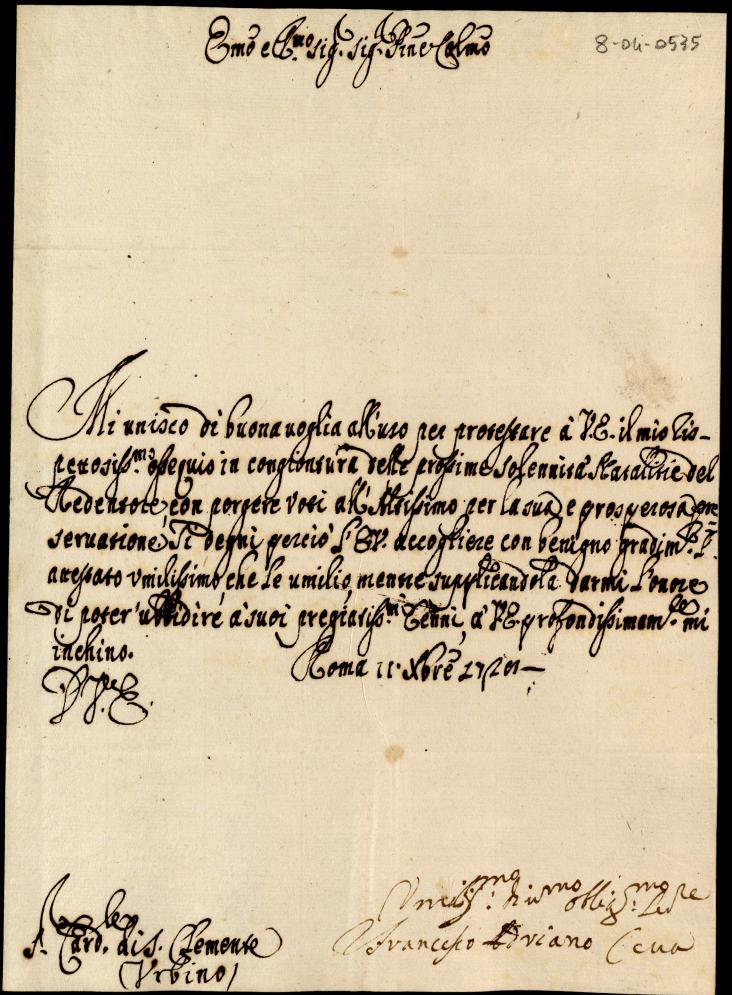 Emo e Rmo Sig. Sig. Pñe Colmo
8-04-0535
Mi unisco di buona uoglia all'uso per protestare à V.E. il mio ris-
petosiss.mo ossequio in congiontura delle prossime solennità Natalitie del
Redentore, con porgere voti all'Altissimo per la sua, e prosperosa pre
seruatione; Si degni perciò l'E.V. accogliere con benigno gradim.to l'
attestato vmilissimo, che Le umilio, mentre supplicandola darmi l'onore
di poter'ubbidire a' suoi pregiatiss.mi Cenni, à V.E. profondissimam.te mi
inchino.
Roma 11. Xbre
D. V. E.
Vmiliss.mo obligg.mo
Francesco Adriano Ceua
S. Card. di S. Clemente
Vrbino